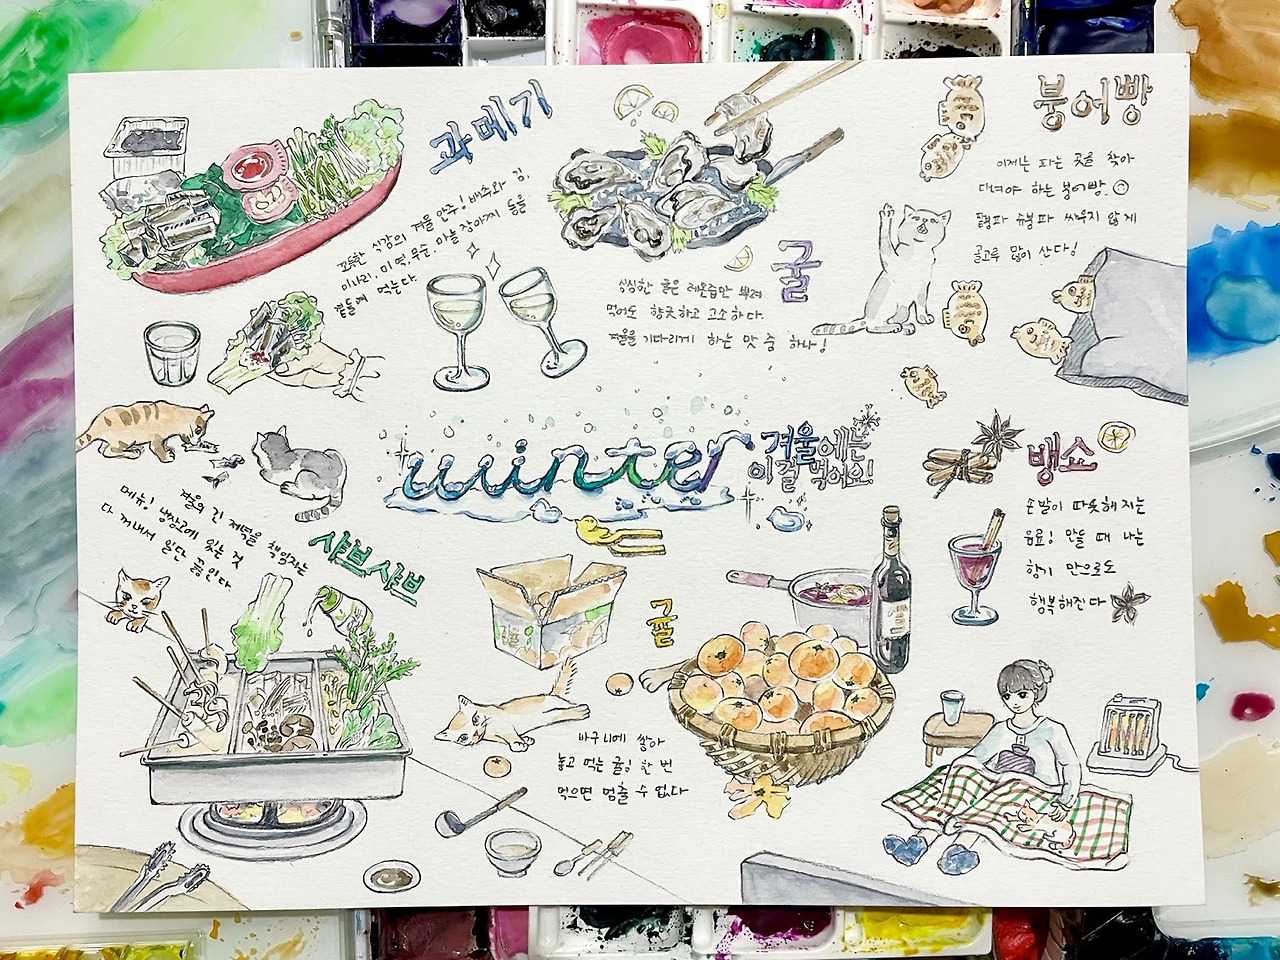 과메기
꼬득한 식감의 겨울 안주! 배추와 김,
미나리, 미역, 무순, 마늘, 장아찌 등을
곁들여 먹는다.
굴
싱싱한 굴은 레몬즙만 뿌려
먹어도 향긋하고 고소하다.
겨울을 기다리게 하는 맛 중 하나!
붕어빵
이제는 파는 곳을 찾아
다녀야 하는 붕어빵.
팥파 슈붕파 싸우지 않게
골고루 많이 산다!
winter
겨울에는
이걸 먹어요!
샤브샤브
겨울의 긴 저녁을 책임지는
메뉴! 냉장고에 있는 것
다 꺼내서 일단 끓인다.
귤
바구니에 쌓아
놓고 먹는 귤! 한 번
먹으면 멈출 수 없다
뱅쇼
손발이 따뜻해지는
음료! 만들 때 나는
향기 만으로도
행복해진다